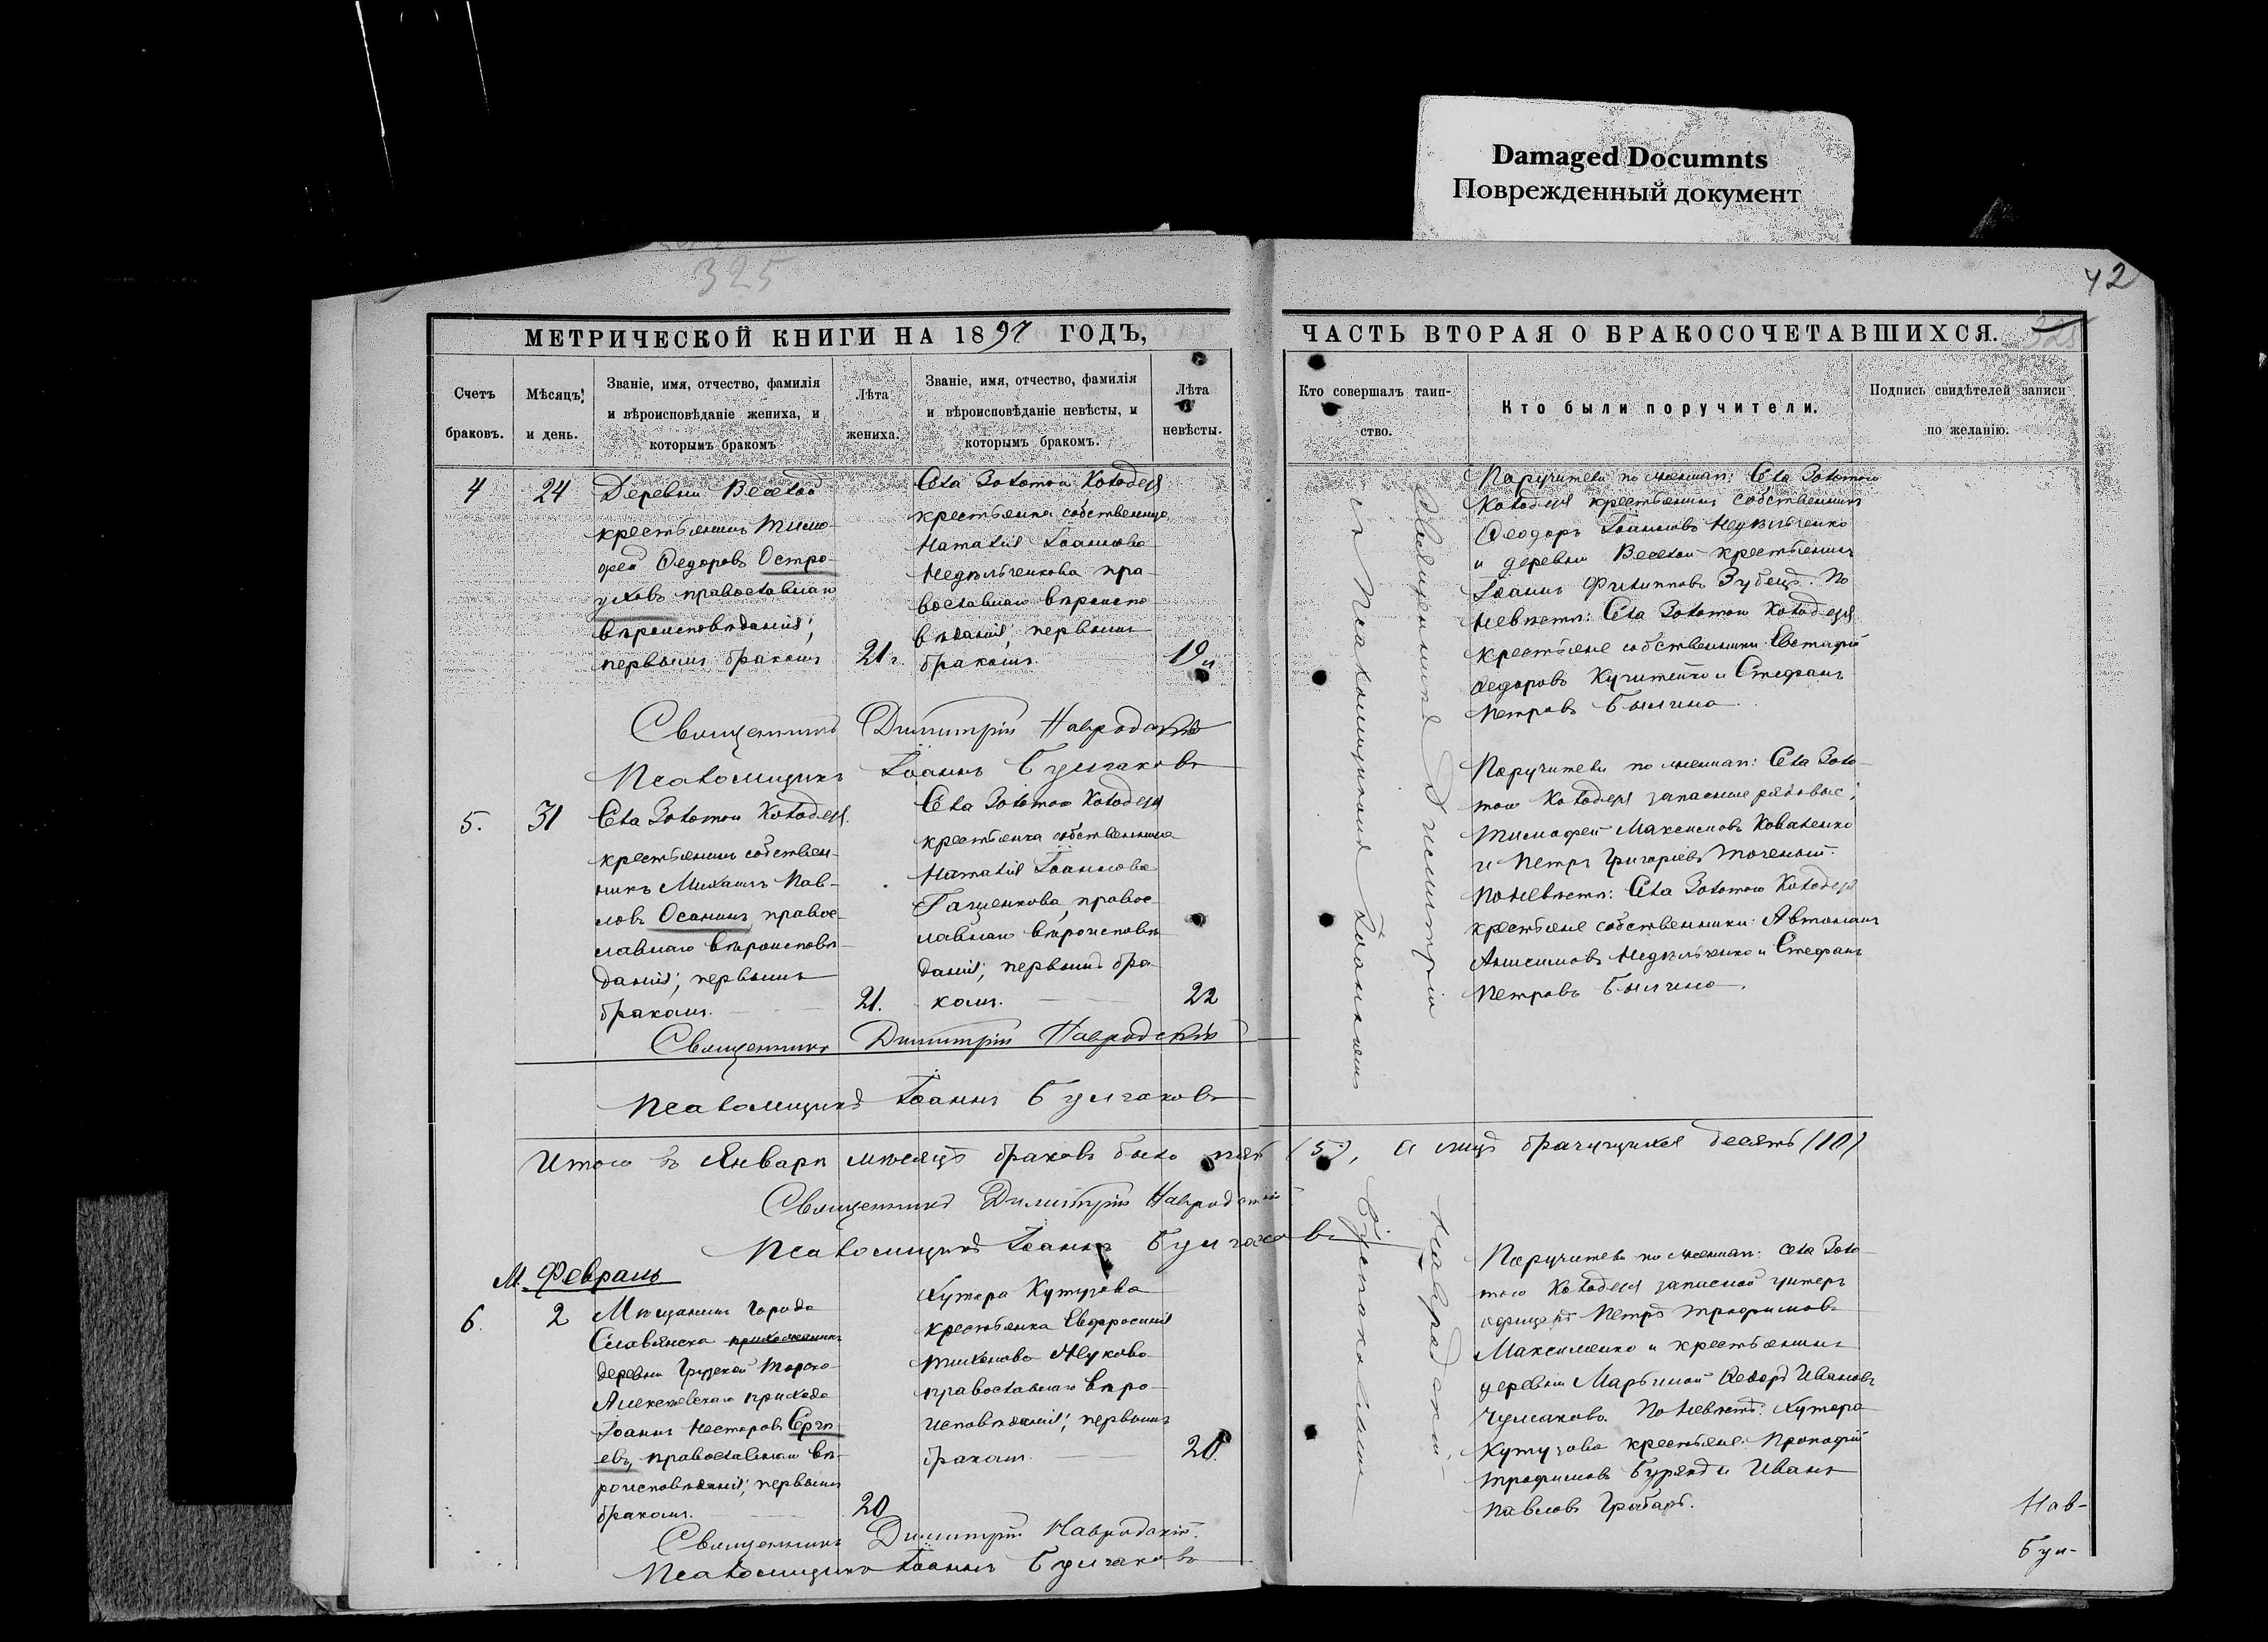 Damaged Documnts
Поврежденный документ
325
42
МЕТРИЧЕСКОЙ КНИГИ НА 1897 ГОДЪ,
ЧАСТЬ ВТОРАЯ О БРАКОСОЧЕТАВШИХСЯ.
Счетъ
браковъ.
Мѣсяцъ
и день.
Званіе, имя, отчество, фамилія
и вѣроисповѣданіе жениха, и
которымъ бракомъ
Лѣта
жениха.
Званіе, имя, отчество, фамилія
и вѣроисповѣданіе невѣсты, и
которымъ бракомъ.
Лѣта
невѣсты.
Кто совершалъ таин-
ство.
Кто были поручители.
Подпись свидѣтелей записи
по желанію.
4
24
Деревни Веселой
крестьянинъ Тимо-
фей Ѳедоровъ Остро-
уховъ православнаго
вѣроисповѣданія;
первымъ бракомъ
21 г.
Села Золотого Колодезя
крестьянка собственница
Наталія Іоаннова
Недѣльченкова пра-
вославнаго вѣроиспо-
вѣданія; первымъ
бракомъ.
19
Поручители по женихѣ: Села Золотого
Колодезя крестьянинъ собственникъ
Ѳеодоръ Іоанновъ Недѣльченко
и деревни Веселой крестьянинъ
Іоаннъ Филипповъ Зубецъ. По
невѣстѣ: Села Золотого Колодезя
крестьяне собственники Евстафій
Ѳедоровъ и Стефанъ
Петровъ
Священникъ Димитрій Навродскій
Псаломщикъ Іоаннъ Булгаковъ
5.
31
Села Золотого Колодезя
крестьянинъ собствен-
никъ Михаилъ Пав-
ловъ Осанинъ, правос-
лавнаго вѣроисповѣ-
данія; первымъ
бракомъ.
21.
Села Золотого Колодезя
крестьянка собственница
Наталія Іоаннова
Гащенкова, правос-
лавнаго вѣроисповѣ-
данія; первымъ бра-
комъ.
22
Поручители по женихѣ: Села Золо-
того Колодезя запасные рядовые:
Тимофей Максимовъ Коваленко
и Петръ Григоріевъ Точеный.
По невѣстѣ: Села Золотого Колодезя
крестьяне собственники: Автономъ
Анисимовъ Недѣльченко и Стефанъ
Петровъ
Священникъ Димитрій Навродскій
Псаломщикъ Іоаннъ Булгаковъ
Итого въ Январѣ мѣсяцѣ браковъ было пять (5), а лицъ брачущихся десять (10)
Священникъ Димитрій Навродскій
Псаломщикъ Іоаннъ Булгаковъ
М. Февраль
6.
2
Мѣщанинъ города
Славянска прихожанинъ
деревни Грузской Торско-
Алексѣевскаго прихода
Іоаннъ Нестеровъ Сергѣ-
евъ, православнаго вѣ-
роисповѣданія; первымъ
бракомъ.
20
Хутора Кутузова
крестьянка Евфросинія
Тихонова Жукова
православнаго вѣро-
исповѣданія; первымъ
бракомъ.
Поручители по женихѣ: села Золо-
того Колодезя запасной унтеръ
офицеръ Петръ Трофимовъ
Максименко и крестьянинъ
деревни Марьиной Ѳедоръ Ивановъ
Чумаковъ. По невѣстѣ: Хутора
Кутузова крестьяне: Прокофій
Трофимовъ и Иванъ
Павловъ Грабарь.
Священникъ Димитрій Навродскій.
Псаломщикъ Іоаннъ Булгаковъ
Священникъ Димитрій Навродскій
съ Псаломщикомъ Іоанномъ Булгаковымъ
Нав-
Бул-